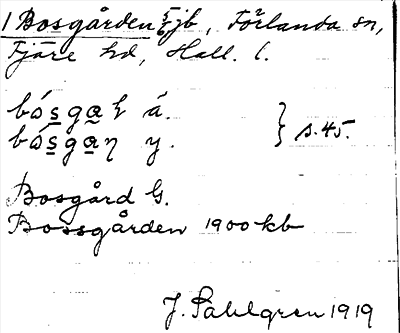 1 Bosgården 5/6 jb, Förlanda sn,
Fjäre hd, Hall. l.
bósgaɽ ä. } s. 45.
bósgaɳ y.
Bosgård G.
Bossgården 1900 kb
J. Sahlgren 1919